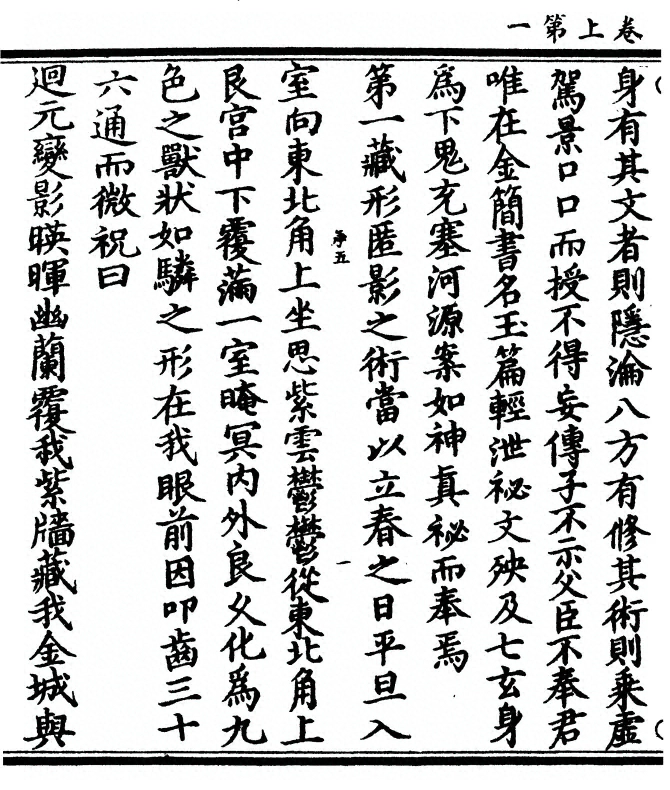 卷上第一
身有其文者則隱淪八方有修其術則乘虛
駕景口口而授不得妄傳子不示父臣不奉君
唯在金簡書名玉篇輕泄祕文殃及七玄身
爲下鬼充塞河源案如神真祕而奉焉
第一藏形匿影之術當以立春之日平旦入
室向東北角上坐思紫雲鬱鬱從東北角上
艮宮中下覆滿一室晻冥內外良久化爲九
色之獸狀如驎之形在我眼前因叩齒三十
六通而微祝曰
迴元變影暎暉幽蘭覆我紫牆藏我金城與